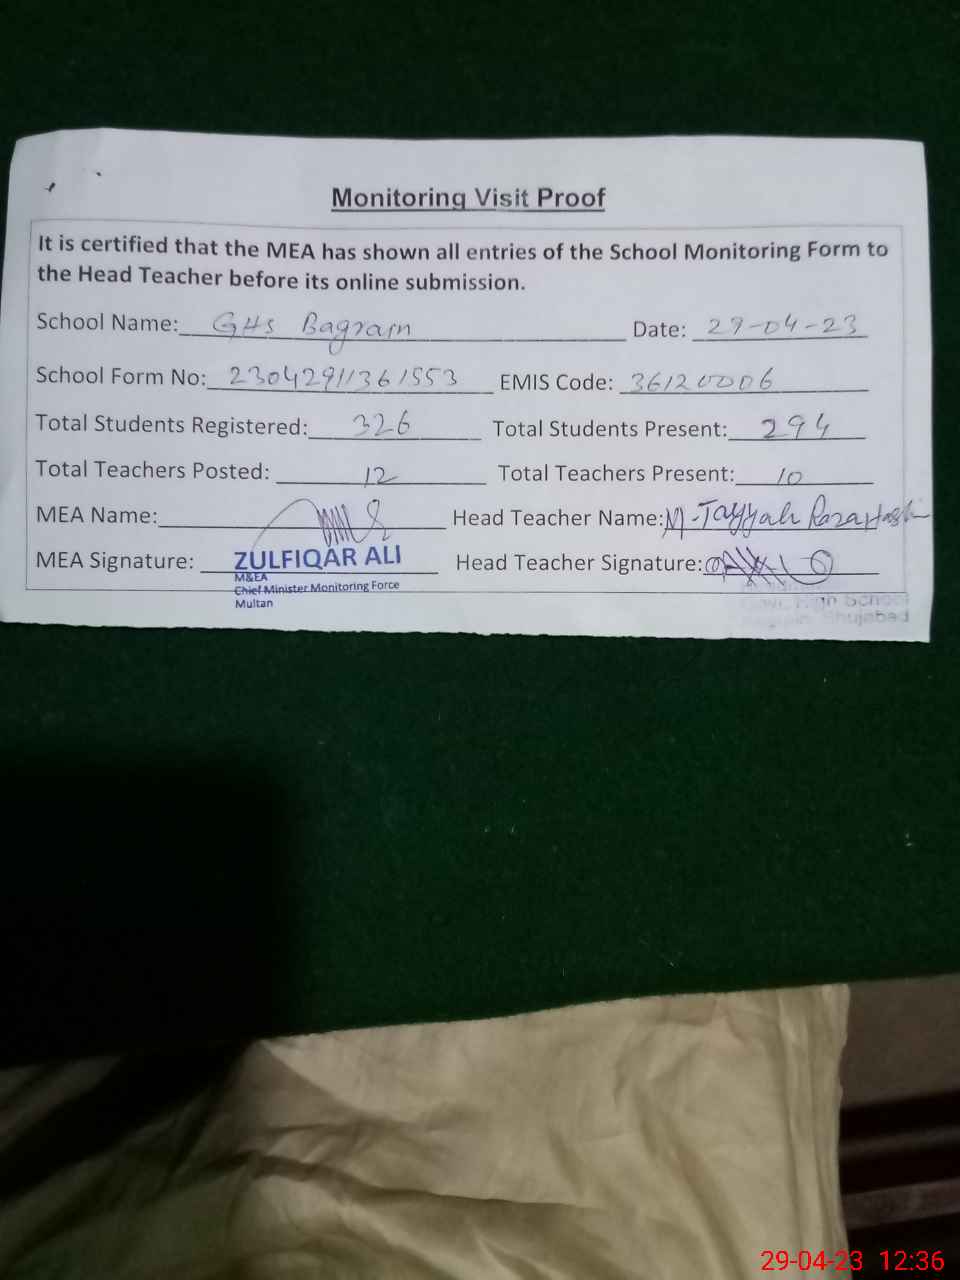 Monitoring Visit Proof
It is certified that the MEA has shown all entries of the School Monitoring Form to
the Head Teacher before its online submission.
School Name: GHS Bagrain Date: 29-04-23
School Form No: 23042911361553 EMIS Code: 36120006
Total Students Registered: 326 Total Students Present: 294
Total Teachers Posted: 12 Total Teachers Present: 10
MEA Name: Head Teacher Name: M-Tayyab Raza
MEA Signature: ZULFIQAR ALI Head Teacher Signature:
M&EA
Chief Minister Monitoring Force
Multan
High School
Shujabad
29-04-23 12:36